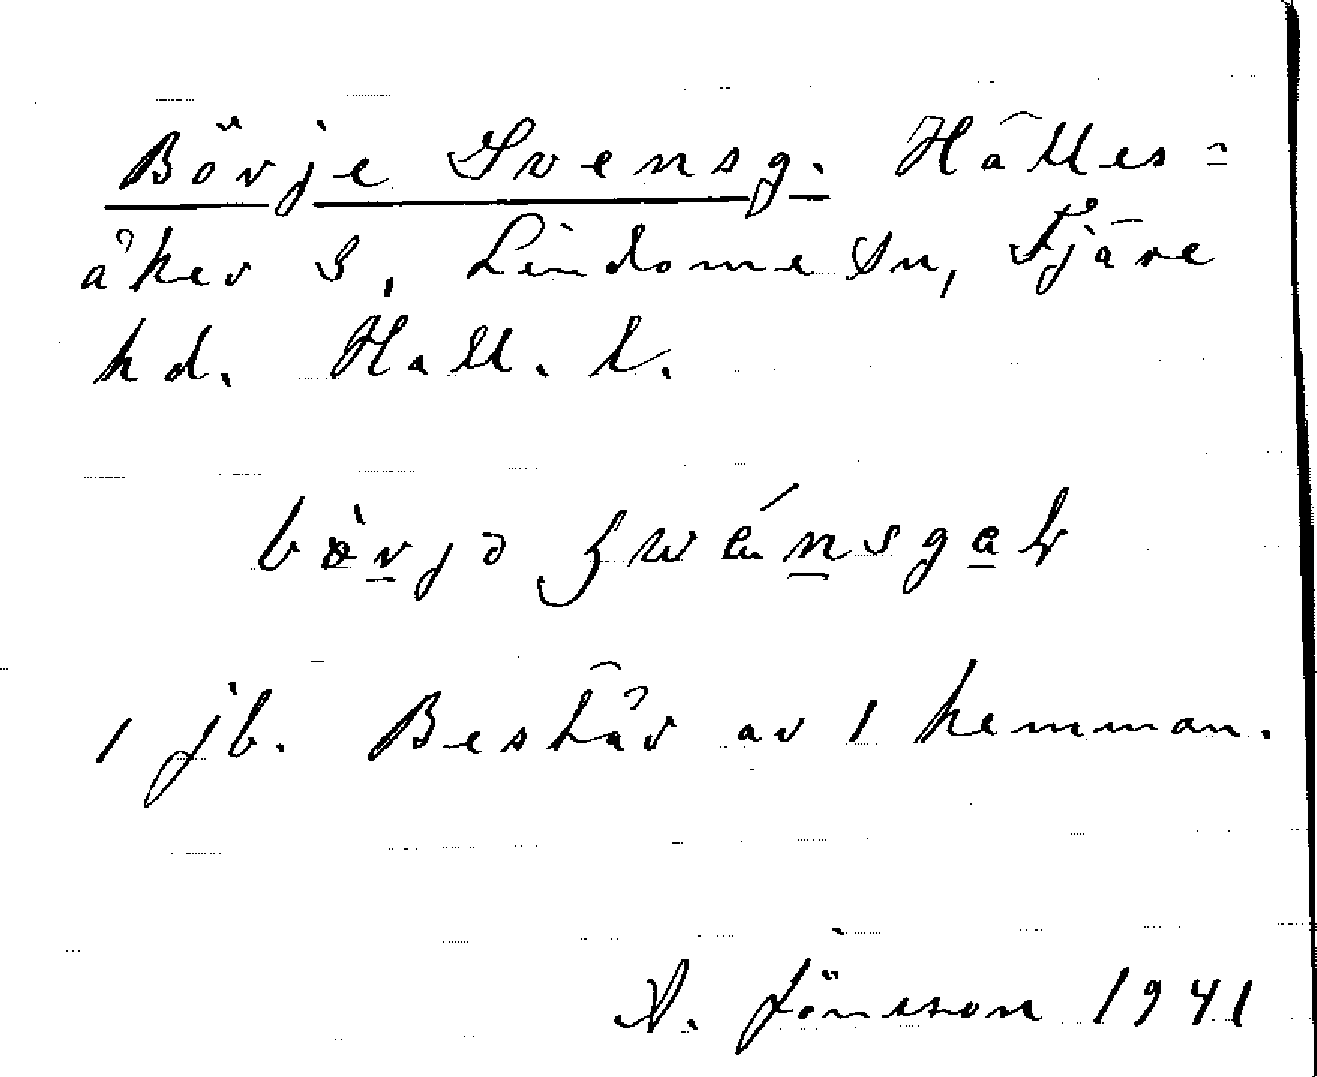 Börje Svensg. Hälles=
åker 3, Lindome sn, Fjäre
hd. Hall. l.
1 jb. Består av 1 hemman.
A. Jönsson 1941